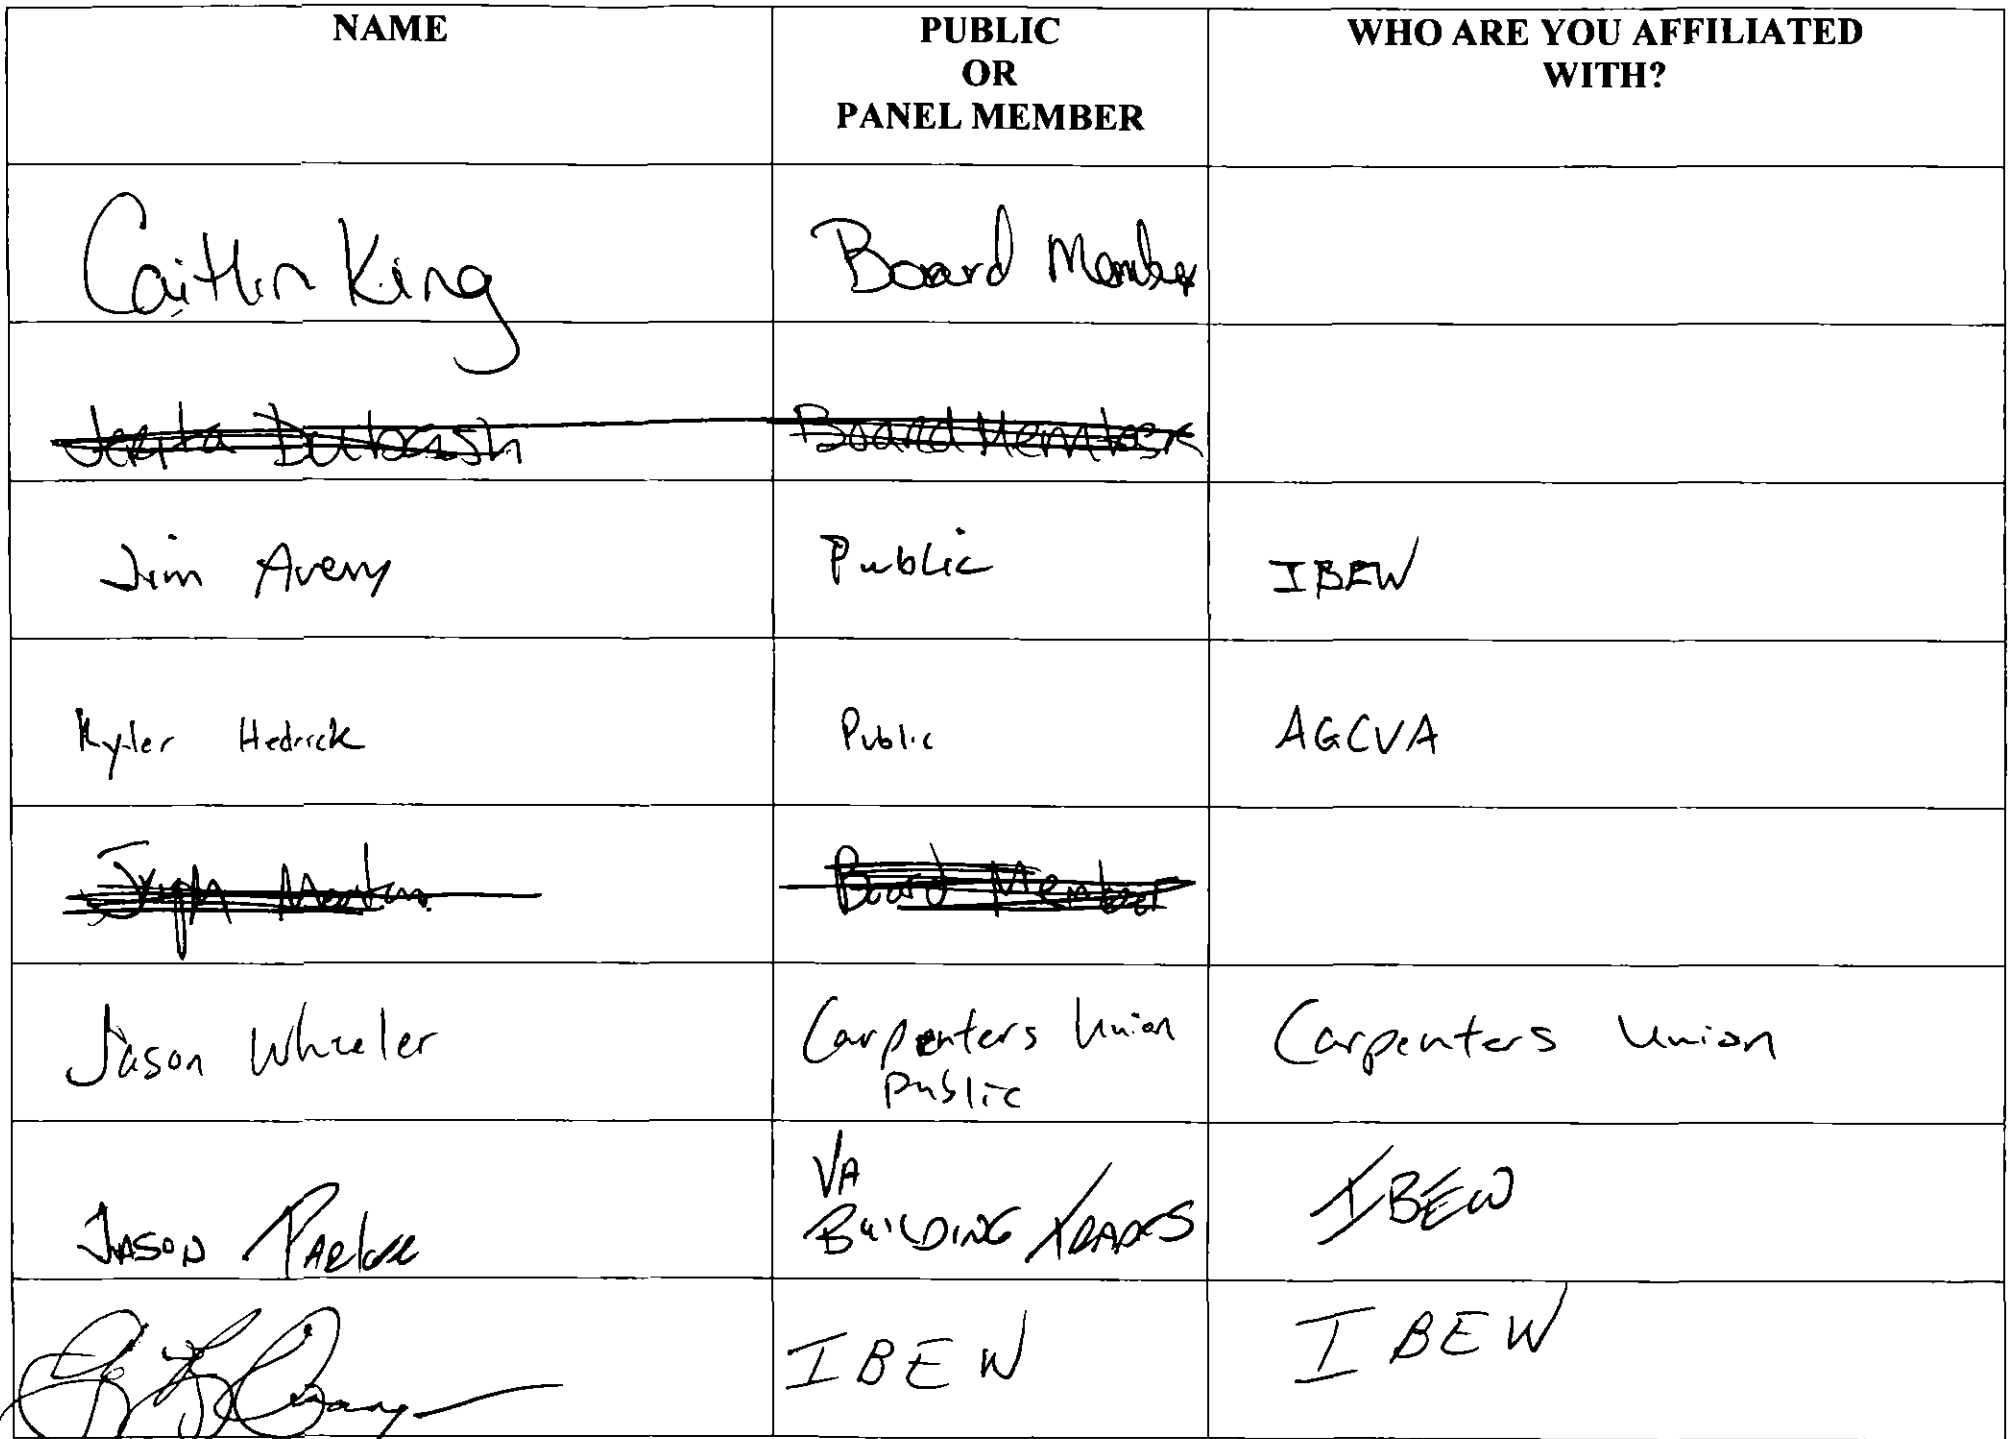 NAME
PUBLIC
OR
PANEL MEMBER
WHO ARE YOU AFFILIATED
WITH?
Caitlin King
Board Member
Board Member
Jim Avery
Public
IBEW
Kyler Hedrick
Public
AGCVA
Board Member
Jason Wheeler
Carpenters Union
Public
Carpenters Union
JASON PARKER
VA
BUILDING TRADES
IBEW
IBEW
IBEW